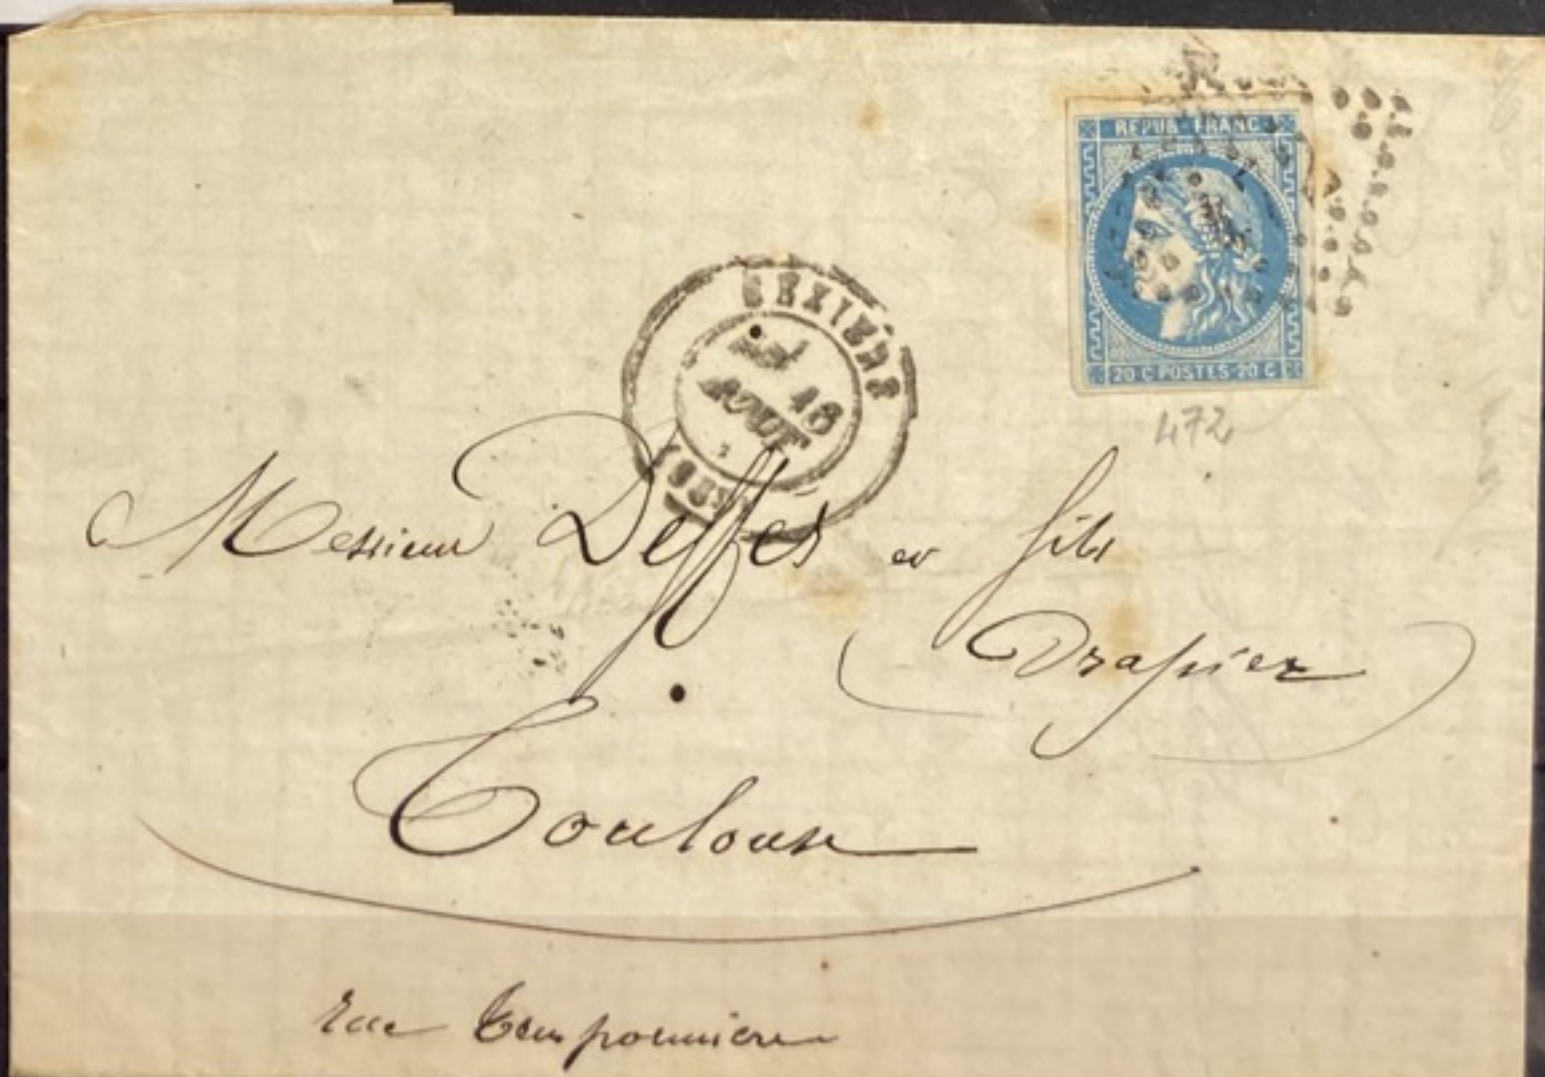 REPUB FRANC
20 C POSTES 20 C
472
BEZIERS
18
AOUT
Messieurs Deffes et fils
Drapier
Toulouse
rue Temponnieres